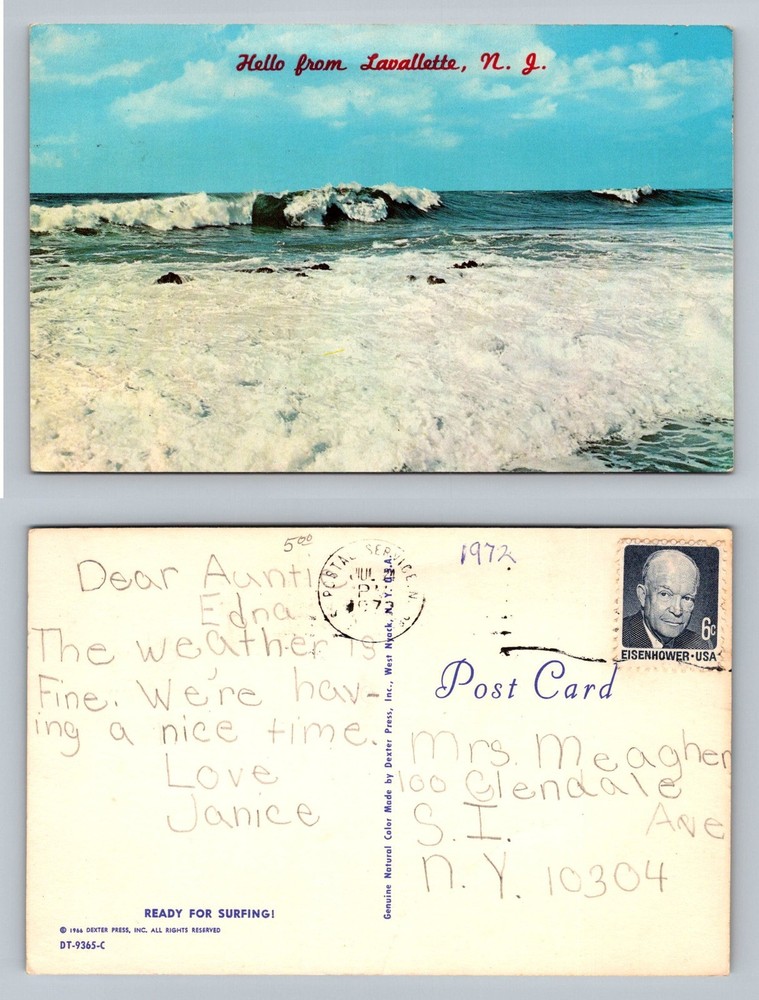 Hello from Lavallette, N. J.
5.00
1972
POSTAL SERVICE N.
JUL
6c
EISENHOWER·USA
Dear Aunti
Edna
The weather is
Fine. We're hav-
ing a nice time.
Love
Janice
Genuine Natural Color Made by Dexter Press, Inc., West Nyack, N.Y. U.S.A.
Post Card
Mrs. Meagher
100 Glendale
Ave
S.I.
N.Y. 10304
READY FOR SURFING!
© 1966 DEXTER PRESS, INC. ALL RIGHTS RESERVED
DT-9365-C